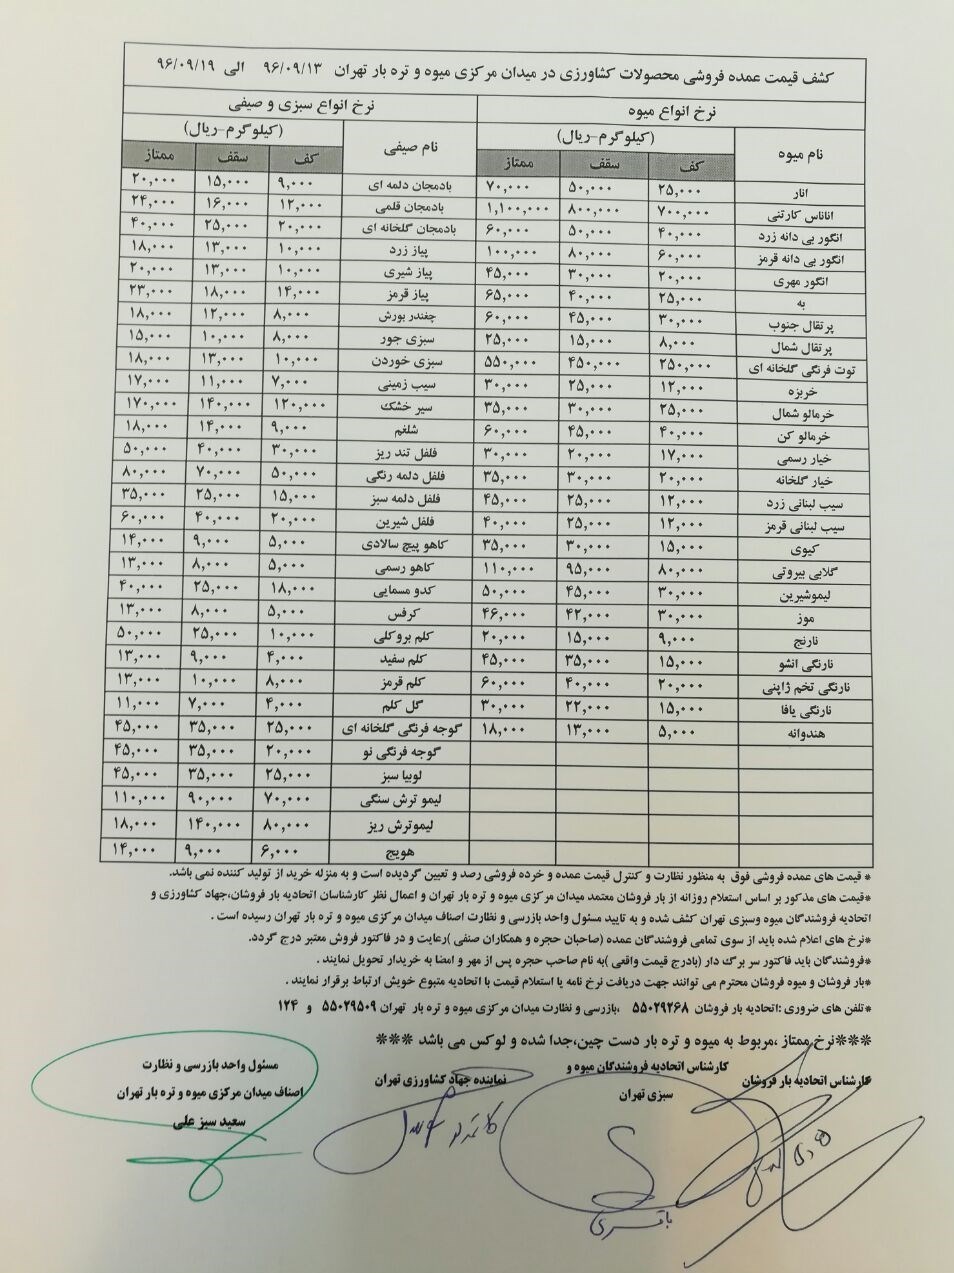 کشف قیمت عمده فروشی محصولات کشاورزی در میدان مرکزی میوه و تره بار تهران ۹۶/۰۹/۱۳ الی ۹۶/۰۹/۱۹
نرخ انواع میوه نرخ انواع سبزی و صیفی
نام میوه (کیلوگرم-ریال) نام صیفی (کیلوگرم-ریال)
کف سقف ممتاز کف سقف ممتاز
انار ۲۵,۰۰۰ ۵۰,۰۰۰ ۷۰,۰۰۰ بادمجان دلمه ای ۹,۰۰۰ ۱۵,۰۰۰ ۲۰,۰۰۰
اناناس کارتنی ۷۰۰,۰۰۰ ۸۰۰,۰۰۰ ۱,۱۰۰,۰۰۰ بادمجان قلمی ۱۲,۰۰۰ ۱۶,۰۰۰ ۲۴,۰۰۰
انگور بی دانه زرد ۴۰,۰۰۰ ۵۰,۰۰۰ ۶۰,۰۰۰ بادمجان گلخانه ای ۲۰,۰۰۰ ۲۵,۰۰۰ ۴۰,۰۰۰
انگور بی دانه قرمز ۶۰,۰۰۰ ۸۰,۰۰۰ ۱۰۰,۰۰۰ پیاز زرد ۱۰,۰۰۰ ۱۳,۰۰۰ ۱۸,۰۰۰
انگور مهری ۲۰,۰۰۰ ۳۰,۰۰۰ ۴۵,۰۰۰ پیاز شیری ۱۰,۰۰۰ ۱۳,۰۰۰ ۲۰,۰۰۰
به ۲۵,۰۰۰ ۴۰,۰۰۰ ۶۵,۰۰۰ پیاز قرمز ۱۴,۰۰۰ ۱۸,۰۰۰ ۲۳,۰۰۰
پرتقال جنوب ۳۰,۰۰۰ ۴۵,۰۰۰ ۶۰,۰۰۰ چغندر بورش ۸,۰۰۰ ۱۲,۰۰۰ ۱۸,۰۰۰
پرتقال شمال ۸,۰۰۰ ۱۵,۰۰۰ ۲۵,۰۰۰ سبزی جور ۸,۰۰۰ ۱۰,۰۰۰ ۱۵,۰۰۰
توت فرنگی گلخانه ای ۲۵۰,۰۰۰ ۴۵۰,۰۰۰ ۵۵۰,۰۰۰ سبزی خوردن ۱۰,۰۰۰ ۱۳,۰۰۰ ۱۸,۰۰۰
خربزه ۱۲,۰۰۰ ۲۵,۰۰۰ ۳۰,۰۰۰ سیب زمینی ۷,۰۰۰ ۱۱,۰۰۰ ۱۷,۰۰۰
خرمالو شمال ۲۵,۰۰۰ ۳۰,۰۰۰ ۳۵,۰۰۰ سیر خشک ۱۲۰,۰۰۰ ۱۴۰,۰۰۰ ۱۷۰,۰۰۰
خرمالو کن ۴۰,۰۰۰ ۴۵,۰۰۰ ۶۰,۰۰۰ شلغم ۹,۰۰۰ ۱۴,۰۰۰ ۱۸,۰۰۰
خیار رسمی ۱۷,۰۰۰ ۲۰,۰۰۰ ۳۰,۰۰۰ فلفل تند ریز ۳۰,۰۰۰ ۴۰,۰۰۰ ۵۰,۰۰۰
خیار گلخانه ۲۰,۰۰۰ ۳۰,۰۰۰ ۳۵,۰۰۰ فلفل دلمه رنگی ۵۰,۰۰۰ ۷۰,۰۰۰ ۸۰,۰۰۰
سیب لبنانی زرد ۱۲,۰۰۰ ۲۵,۰۰۰ ۴۵,۰۰۰ فلفل دلمه سبز ۱۵,۰۰۰ ۲۵,۰۰۰ ۳۵,۰۰۰
سیب لبنانی قرمز ۱۲,۰۰۰ ۲۵,۰۰۰ ۴۰,۰۰۰ فلفل شیرین ۲۰,۰۰۰ ۴۰,۰۰۰ ۶۰,۰۰۰
کیوی ۱۵,۰۰۰ ۳۰,۰۰۰ ۳۵,۰۰۰ کاهو پیچ سالادی ۵,۰۰۰ ۹,۰۰۰ ۱۴,۰۰۰
گلابی بیروتی ۸۰,۰۰۰ ۹۵,۰۰۰ ۱۱۰,۰۰۰ کاهو رسمی ۵,۰۰۰ ۸,۰۰۰ ۱۳,۰۰۰
لیموشیرین ۳۰,۰۰۰ ۴۵,۰۰۰ ۵۰,۰۰۰ کدو مسمایی ۱۸,۰۰۰ ۲۵,۰۰۰ ۴۰,۰۰۰
موز ۳۰,۰۰۰ ۴۲,۰۰۰ ۴۶,۰۰۰ کرفس ۵,۰۰۰ ۸,۰۰۰ ۱۳,۰۰۰
نارنج ۹,۰۰۰ ۱۵,۰۰۰ ۲۰,۰۰۰ کلم بروکلی ۱۰,۰۰۰ ۲۵,۰۰۰ ۵۰,۰۰۰
نارنگی انشو ۱۵,۰۰۰ ۳۵,۰۰۰ ۴۵,۰۰۰ کلم سفید ۴,۰۰۰ ۹,۰۰۰ ۱۳,۰۰۰
نارنگی تخم ژاپنی ۲۰,۰۰۰ ۴۰,۰۰۰ ۶۰,۰۰۰ کلم قرمز ۸,۰۰۰ ۱۰,۰۰۰ ۱۳,۰۰۰
نارنگی یافا ۱۵,۰۰۰ ۲۲,۰۰۰ ۳۰,۰۰۰ گل کلم ۴,۰۰۰ ۷,۰۰۰ ۱۱,۰۰۰
هندوانه ۵,۰۰۰ ۱۳,۰۰۰ ۱۸,۰۰۰ گوجه فرنگی گلخانه ای ۲۵,۰۰۰ ۳۵,۰۰۰ ۴۵,۰۰۰
گوجه فرنگی نو ۲۰,۰۰۰ ۳۵,۰۰۰ ۴۵,۰۰۰
لوبیا سبز ۲۵,۰۰۰ ۳۵,۰۰۰ ۴۵,۰۰۰
لیمو ترش سنگی ۷۰,۰۰۰ ۹۰,۰۰۰ ۱۱۰,۰۰۰
لیموترش ریز ۸۰,۰۰۰ ۱۴۰,۰۰۰ ۱۸,۰۰۰
هویج ۶,۰۰۰ ۹,۰۰۰ ۱۴,۰۰۰
* قیمت های عمده فروشی فوق به منظور نظارت و کنترل قیمت عمده و خرده فروشی رصد و تعیین گردیده است و به منزله خرید از تولید کننده نمی باشد.
*قیمت های مذکور بر اساس استعلام روزانه از بار فروشان معتمد میدان مرکزی میوه و تره بار تهران و اعمال نظر کارشناسان اتحادیه بار فروشان،جهاد کشاورزی و
اتحادیه فروشندگان میوه وسبزی تهران کشف شده و به تایید مسئول واحد بازرسی و نظارت اصناف میدان مرکزی میوه و تره بار تهران رسیده است .
*نرخ های اعلام شده باید از سوی تمامی فروشندگان عمده (صاحبان حجره و همکاران صنفی )رعایت و در فاکتور فروش معتبر درج گردد.
*فروشندگان باید فاکتور سر برگ دار (بادرج قیمت واقعی )به نام صاحب حجره پس از مهر و امضا به خریدار تحویل نمایند .
*بار فروشان و میوه فروشان محترم می توانند جهت دریافت نرخ نامه یا استعلام قیمت با اتحادیه متبوع خویش ارتباط برقرار نمایند .
*تلفن های ضروری :اتحادیه بار فروشان ۵۵۰۲۹۲۶۸ ،بازرسی و نظارت میدان مرکزی میوه و تره بار تهران ۵۵۰۲۹۵۰۹ و ۱۲۴
***نرخ ممتاز ،مربوط به میوه و تره بار دست چین،جدا شده و لوکس می باشد ***
کارشناس اتحادیه بار فروشان
کارشناس اتحادیه فروشندگان میوه و
سبزی تهران
نماینده جهاد کشاورزی تهران
مسئول واحد بازرسی و نظارت
اصناف میدان مرکزی میوه و تره بار تهران
سعید سبز علی